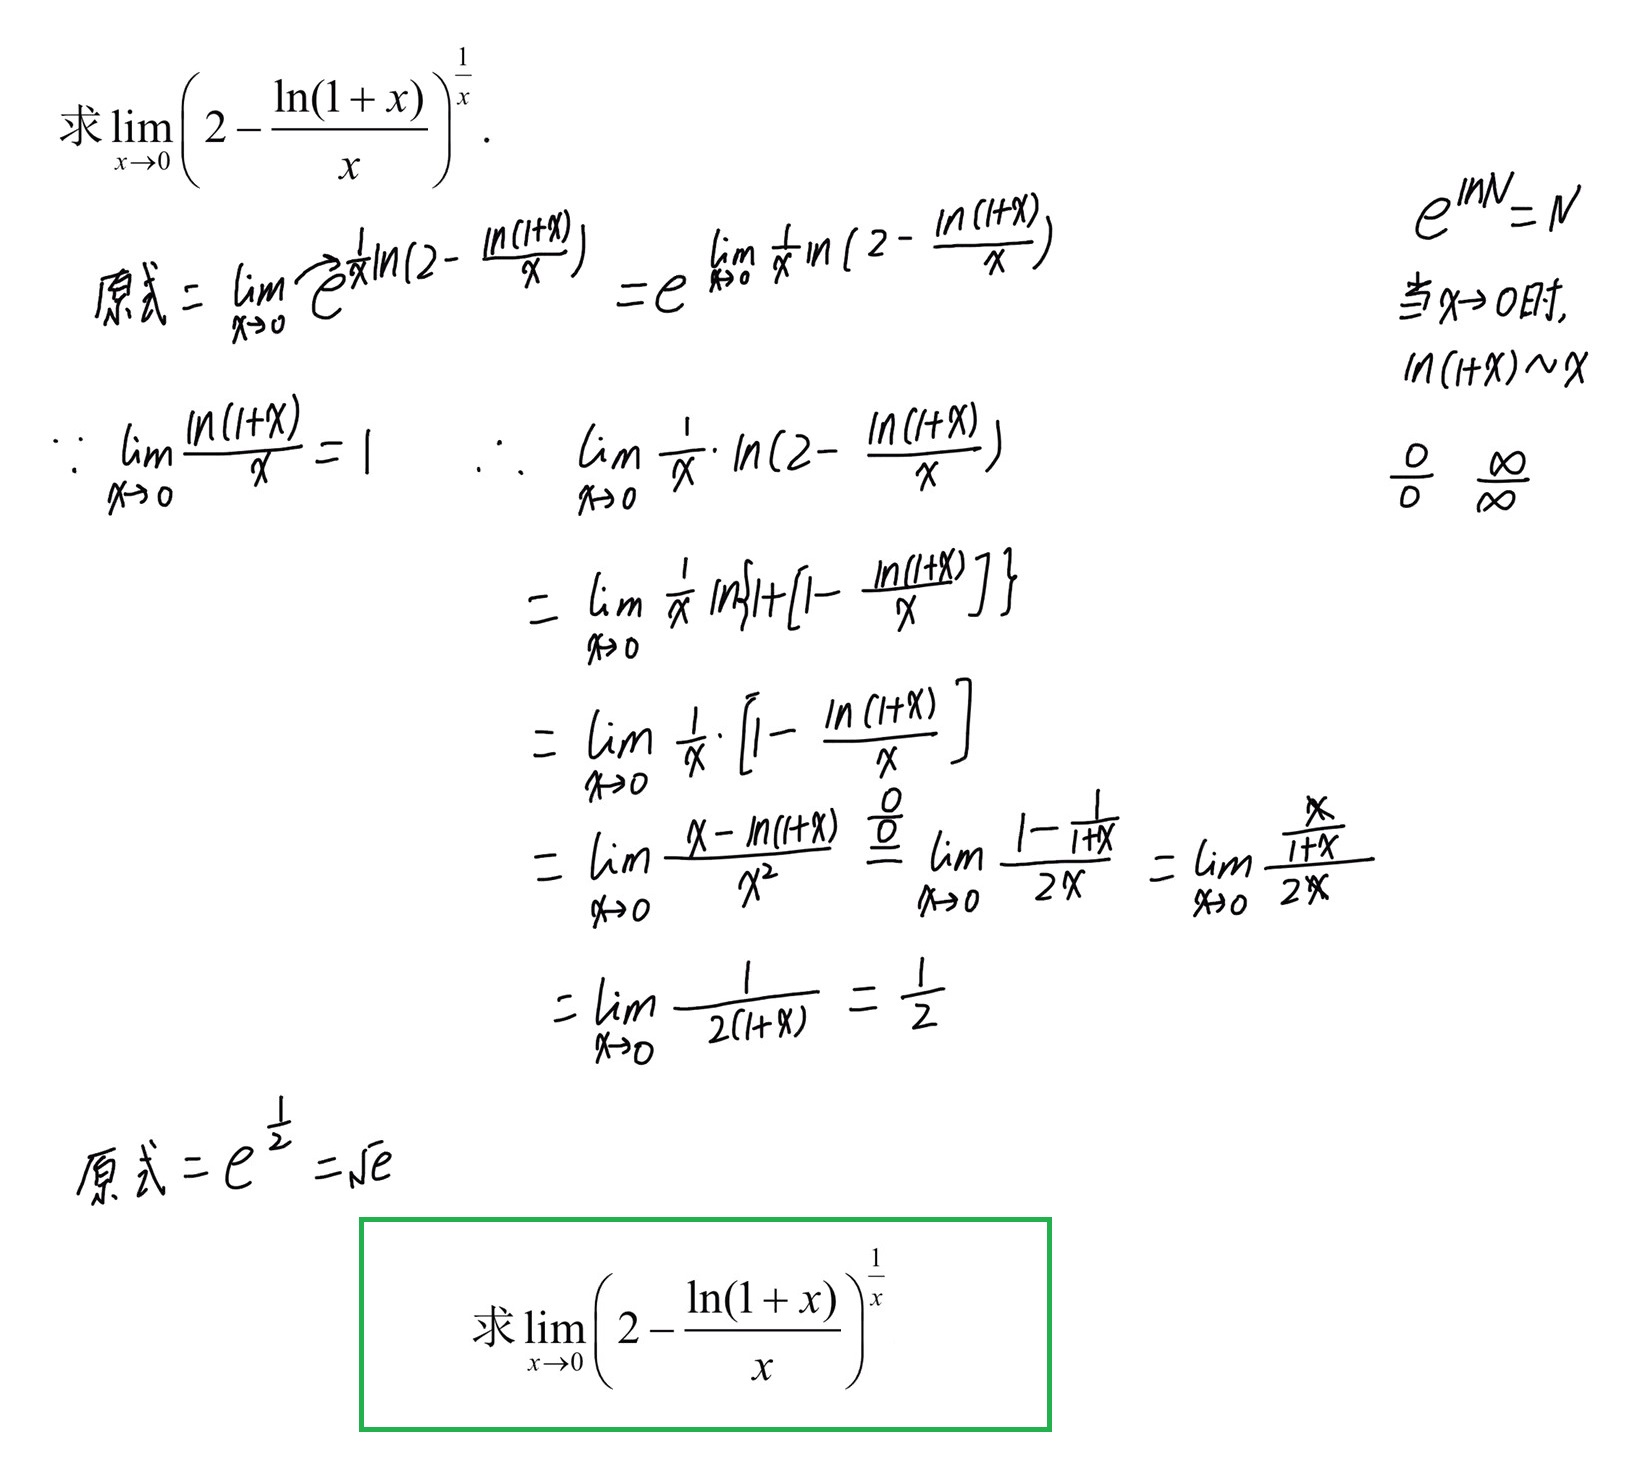 求 lim_{x→0} (2 − ln(1 + x)/x)^{1/x} .
e^{lnN} = N
原式 = lim_{x→0} e^{1/x ln(2 − ln(1+x)/x)} = e^{lim_{x→0} 1/x ln(2 − ln(1+x)/x)}
当 x→0时,
ln(1+x) ~ x
∵ lim_{x→0} ln(1+x)/x = 1 ∴ lim_{x→0} 1/x · ln(2 − ln(1+x)/x)
0/0 ∞/∞
= lim_{x→0} 1/x ln{1+[1 − ln(1+x)/x]}
= lim_{x→0} 1/x · [1 − ln(1+x)/x]
= lim_{x→0} (x − ln(1+x))/x² =^{0/0} lim_{x→0} (1 − 1/(1+x))/(2x) = lim_{x→0} (x/(1+x))/(2x)
= lim_{x→0} 1/(2(1+x)) = 1/2
原式 = e^{1/2} = √e
求 lim_{x→0} (2 − ln(1 + x)/x)^{1/x}